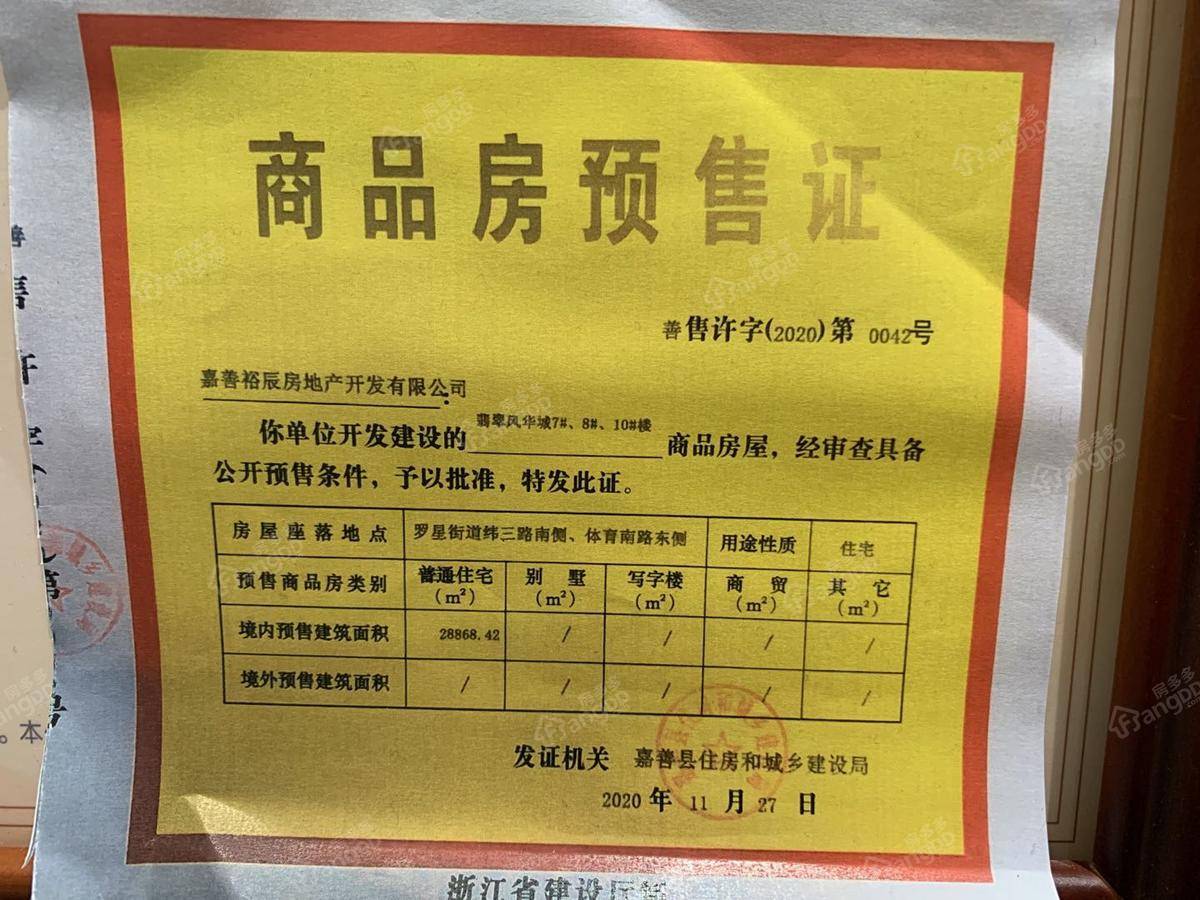 商品房预售证
善售许字(2020)第 0042号
嘉善裕辰房地产开发有限公司：
你单位开发建设的翡翠风华城7#、8#、10#楼商品房屋，经审查具备
公开预售条件，予以批准，特发此证。
房屋座落地点 罗星街道纬三路南侧、体育南路东侧 用途性质 住宅
预售商品房类别 普通住宅(m²) 别墅(m²) 写字楼(m²) 商贸(m²) 其它(m²)
境内预售建筑面积 28868.42 / / / /
境外预售建筑面积 / / / / /
发证机关 嘉善县住房和城乡建设局
2020 年 11 月 27 日
浙江省建设厅
。本
房多多
Fangdd